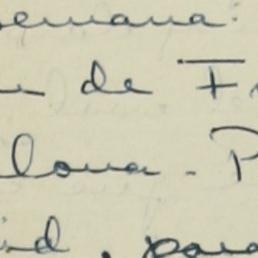 semana.
de F
lona. P
id, para